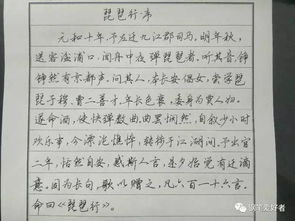 琵琶行·序
元和十年，予左迁九江郡司马。明年秋，
送客湓浦口，闻舟中夜弹琵琶者，听其音，铮
铮然有京都声。问其人，本长安倡女，尝学琵
琶于穆、曹二善才，年长色衰，委身为贾人妇。
遂命酒，使快弹数曲。曲罢悯然，自叙少小时
欢乐事，今漂沦憔悴，转徙于江湖间。予出官
二年，恬然自安，感斯人言，是夕始觉有迁谪
意。因为长句，歌以赠之，凡六百一十六言，
命曰《琵琶行》。